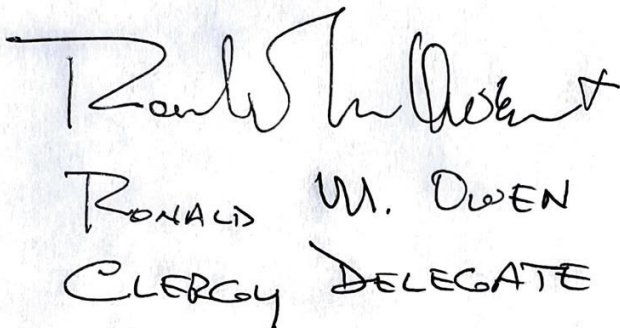 Ronald M. Owen +
RONALD M. OWEN
CLERGY DELEGATE